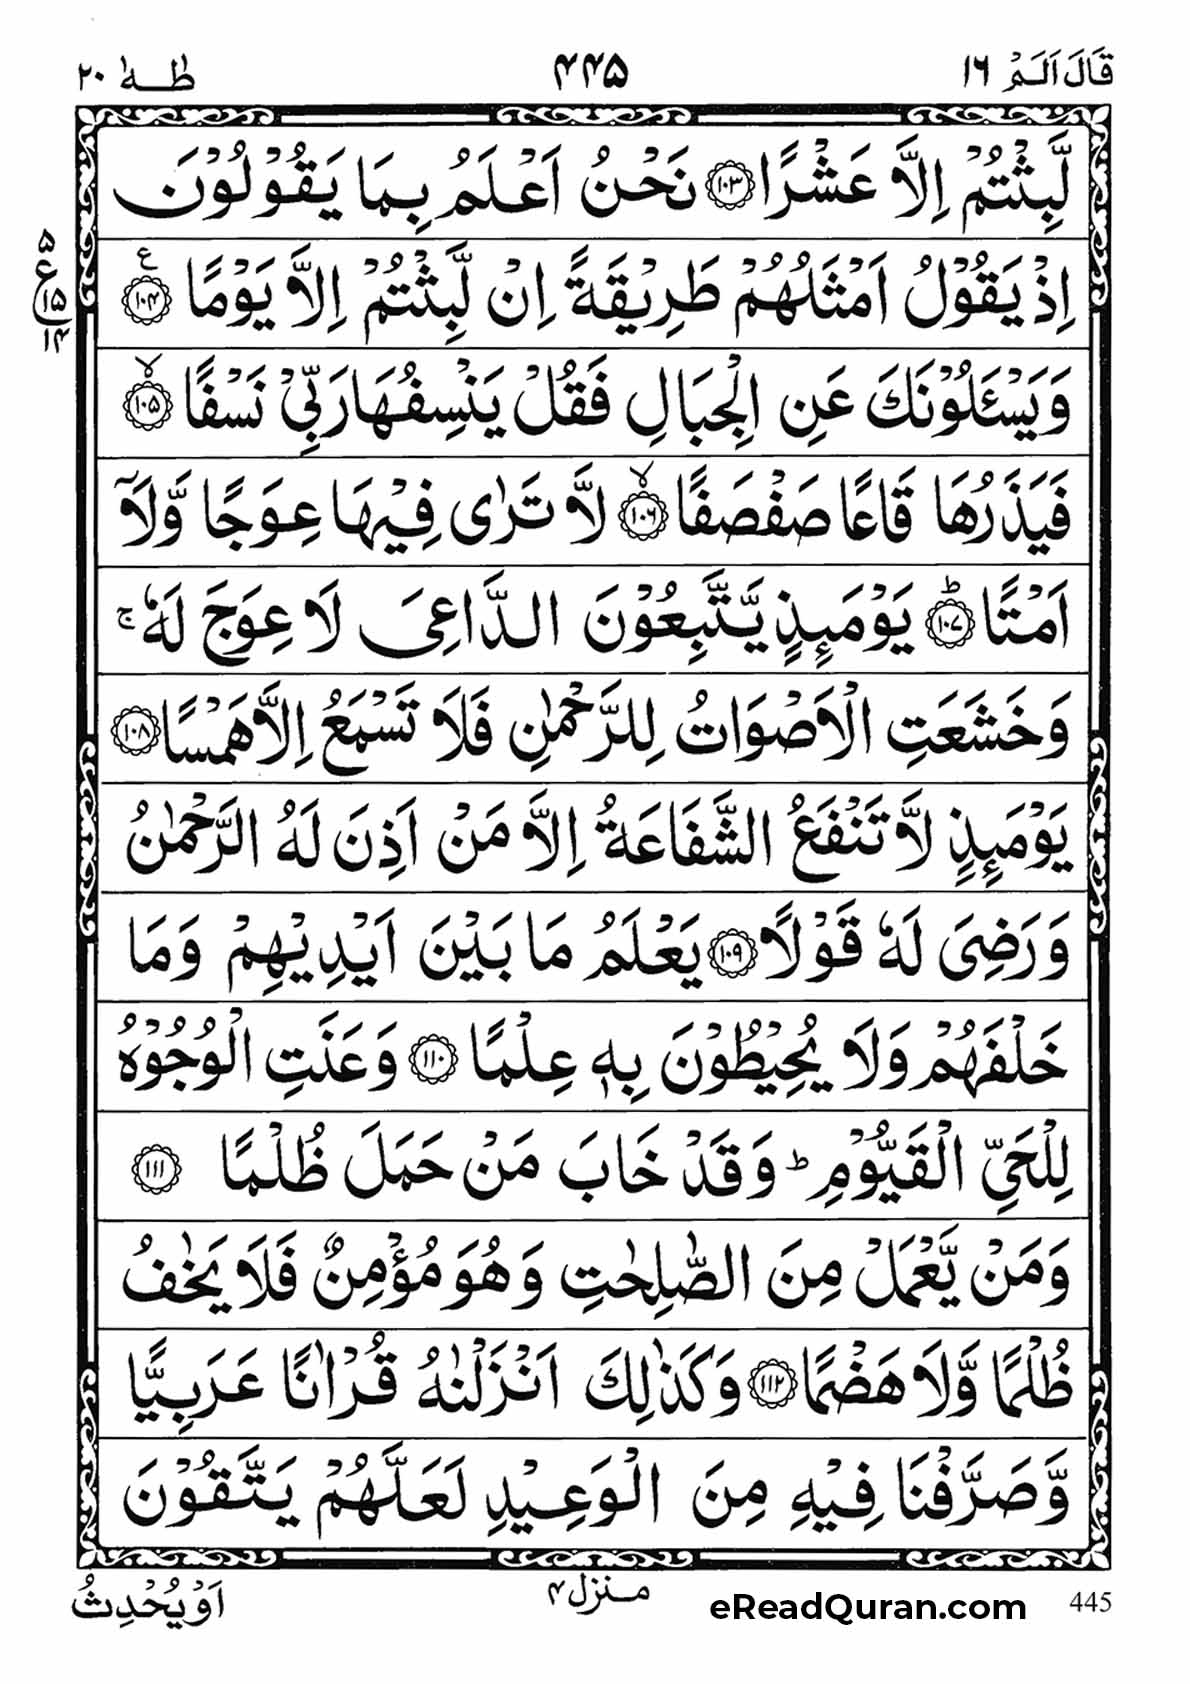 قَالَ اَلَمْ ١٦ ۴۴۵ طٰهٰ ٢٠
لَّبِثْتُمْ اِلَّا عَشْرًا ۝١٠٣ نَحْنُ اَعْلَمُ بِمَا يَقُوْلُوْنَ
اِذْ يَقُوْلُ اَمْثَلُهُمْ طَرِيْقَةً اِنْ لَّبِثْتُمْ اِلَّا يَوْمًا ۝١٠۴ ع
۵ ع ١۵ ١۴
وَيَسْـَٔلُوْنَكَ عَنِ الْجِبَالِ فَقُلْ يَنْسِفُهَا رَبِّىْ نَسْفًا ۝١٠۵ ۙ
فَيَذَرُهَا قَاعًا صَفْصَفًا ۝١٠٦ ۙ لَّا تَرٰى فِيْهَا عِوَجًا وَّلَآ
اَمْتًا ۝١٠٧ ؕ يَوْمَئِذٍ يَّتَّبِعُوْنَ الدَّاعِىَ لَا عِوَجَ لَهٗ ۚ
وَخَشَعَتِ الْاَصْوَاتُ لِلرَّحْمٰنِ فَلَا تَسْمَعُ اِلَّا هَمْسًا ۝١٠٨
يَوْمَئِذٍ لَّا تَنْفَعُ الشَّفَاعَةُ اِلَّا مَنْ اَذِنَ لَهُ الرَّحْمٰنُ
وَرَضِىَ لَهٗ قَوْلًا ۝١٠٩ يَعْلَمُ مَا بَيْنَ اَيْدِيْهِمْ وَمَا
خَلْفَهُمْ وَلَا يُحِيْطُوْنَ بِهٖ عِلْمًا ۝١١٠ وَعَنَتِ الْوُجُوْهُ
لِلْحَىِّ الْقَيُّوْمِ ؕ وَقَدْ خَابَ مَنْ حَمَلَ ظُلْمًا ۝١١١
وَمَنْ يَّعْمَلْ مِنَ الصّٰلِحٰتِ وَهُوَ مُؤْمِنٌ فَلَا يَخٰفُ
ظُلْمًا وَّلَا هَضْمًا ۝١١٢ وَكَذٰلِكَ اَنْزَلْنٰهُ قُرْاٰنًا عَرَبِيًّا
وَّصَرَّفْنَا فِيْهِ مِنَ الْوَعِيْدِ لَعَلَّهُمْ يَتَّقُوْنَ
اَوْ يُحْدِثُ منزل ۴ eReadQuran.com 445